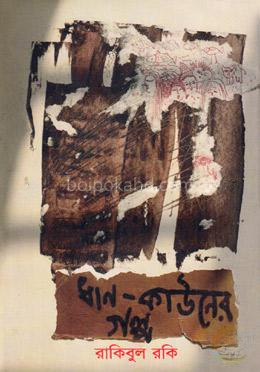 boipokaho.com
ধান-কাউনের
গল্প
রাকিবুল রকি